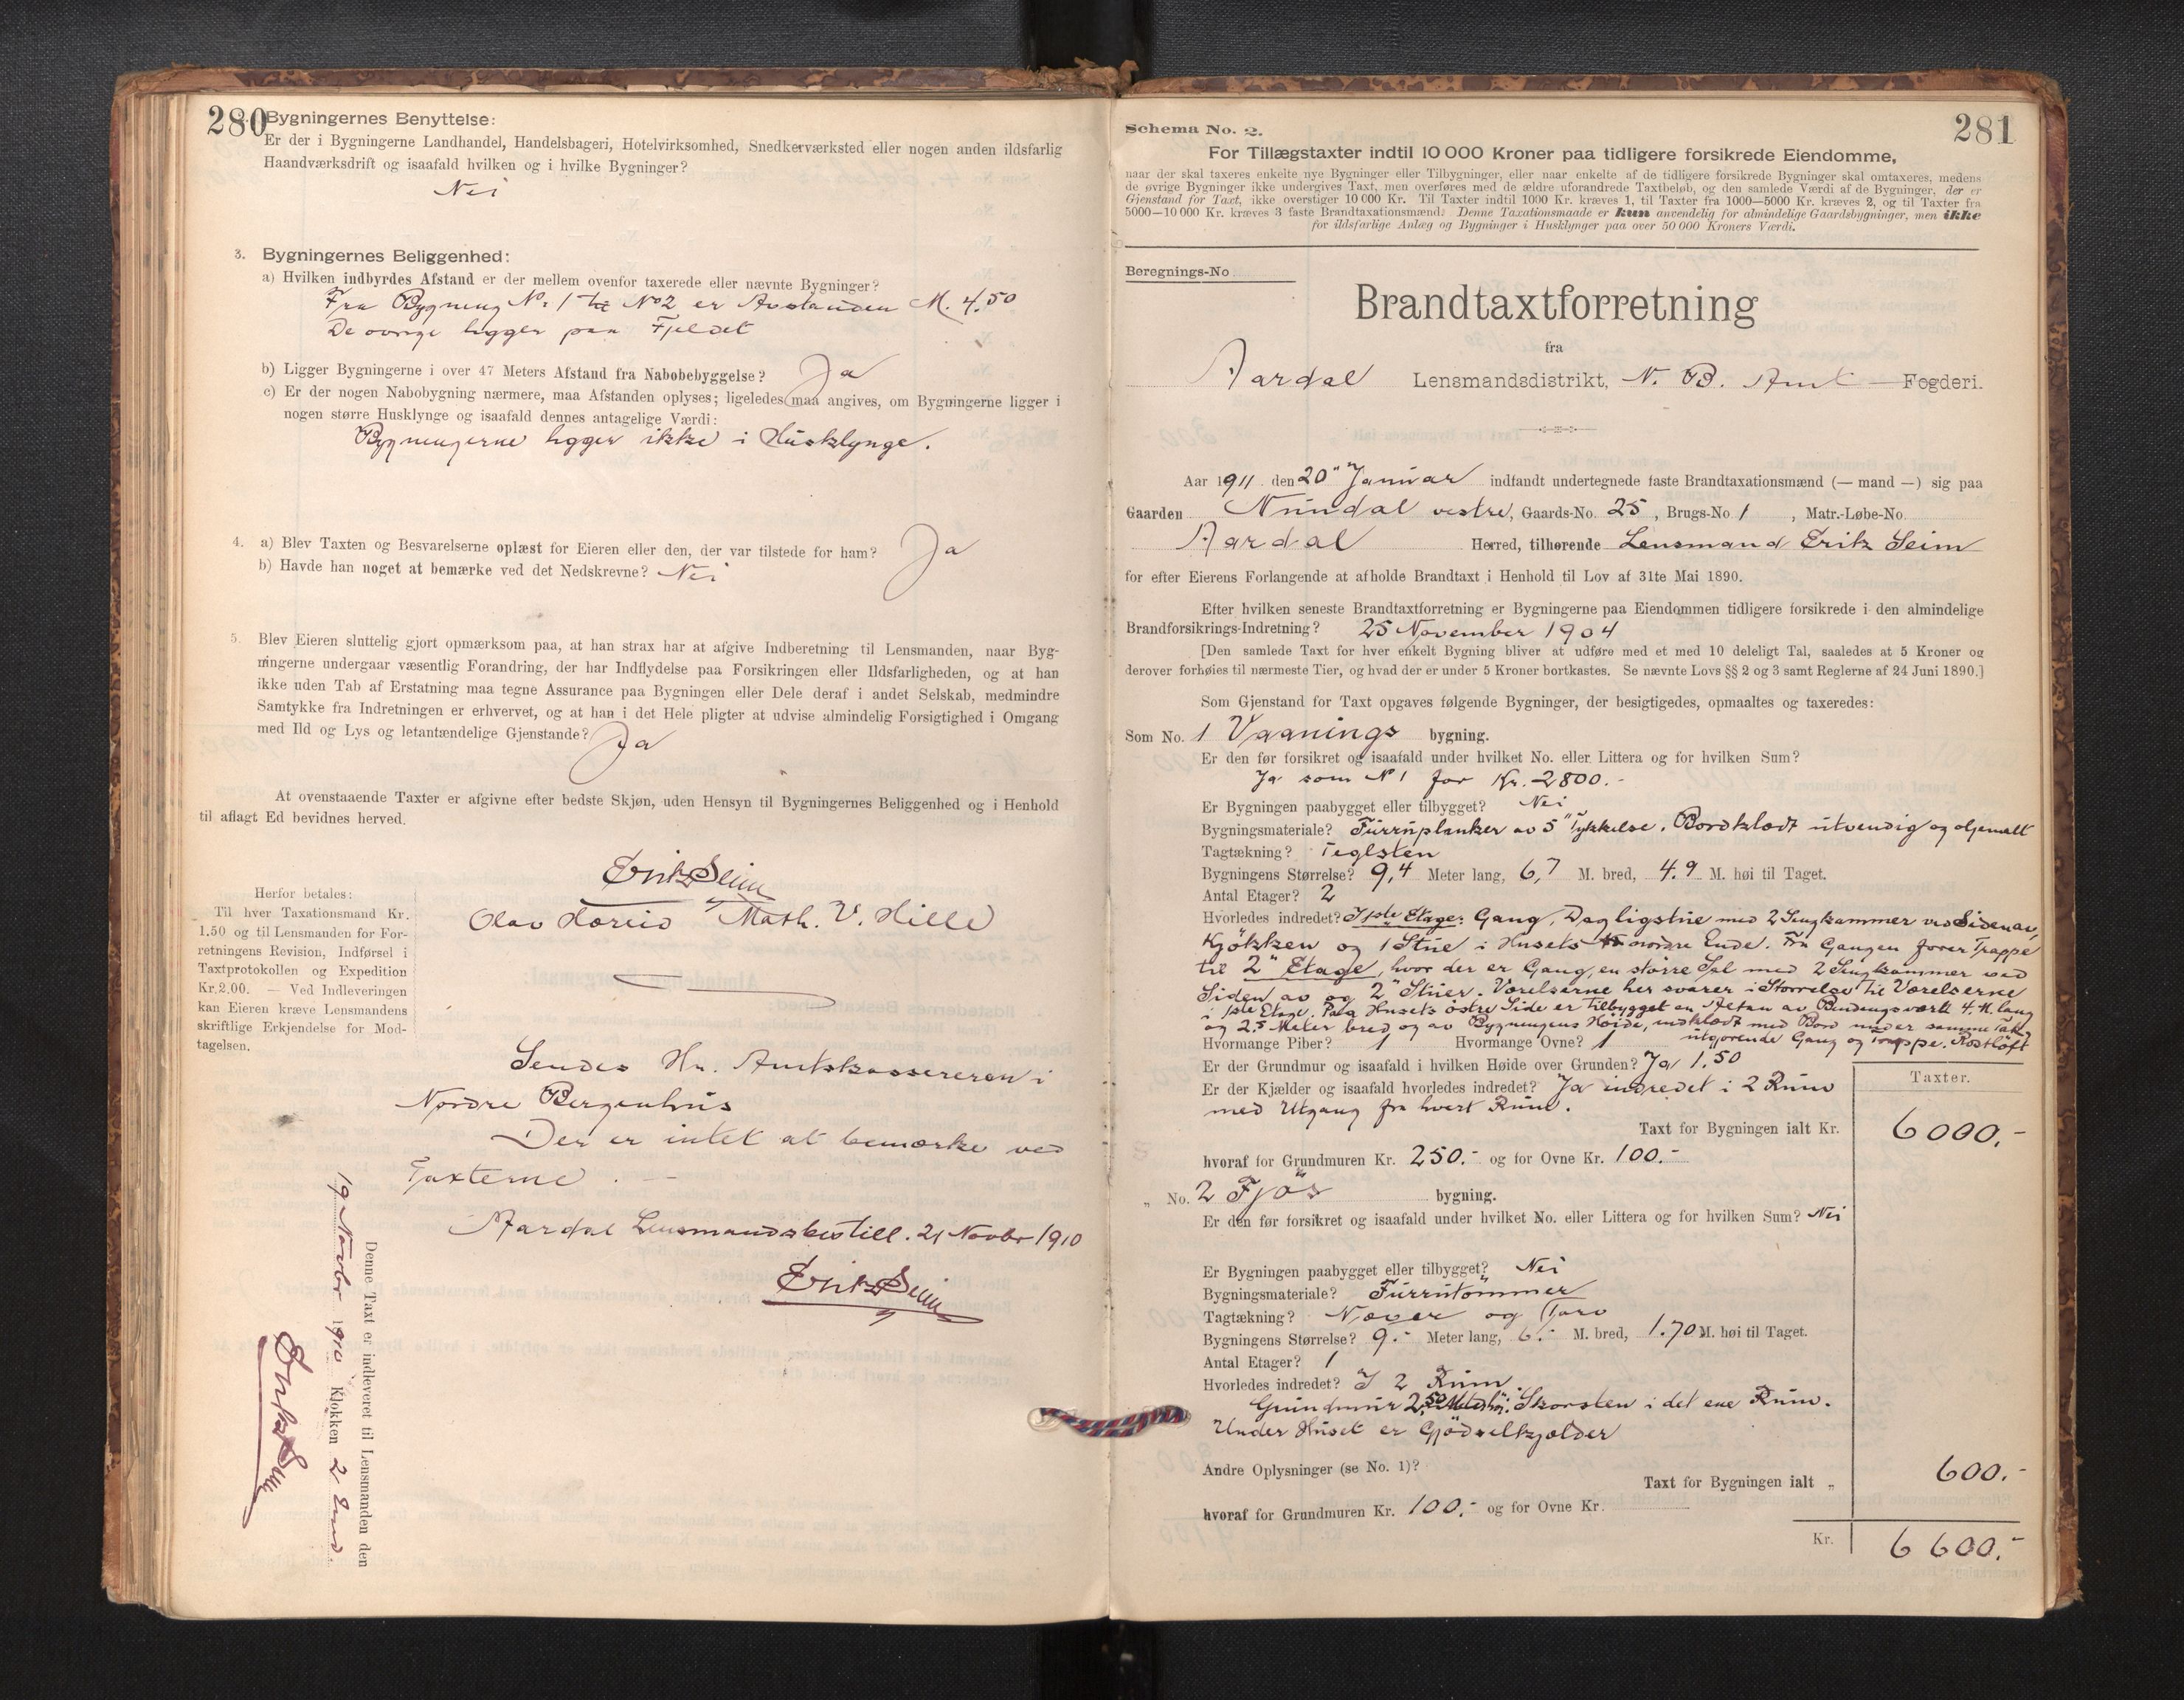 280
Bygningernes Benyttelse:
Er der i Bygningerne Landhandel, Handelsbageri, Hotelvirksomhed, Snedkerværksted eller nogen anden ildsfarlig
Haandværksdrift og isaafald hvilken og i hvilke Bygninger?
Nei
3. Bygningernes Beliggenhed:
a) Hvilken indbyrdes Afstand er der mellem ovenfor taxerede eller nævnte Bygninger?
Fra Bygning No 1 til No 2 er Avstanden M. 4.50
De øvrige ligger paa Fjeldet
b) Ligger Bygningerne i over 47 Meters Afstand fra Nabobebyggelse? Ja
c) Er der nogen Nabobygning nærmere, maa Afstanden oplyses; ligeledes maa angives, om Bygningerne ligger i
nogen større Husklynge og isaafald dennes antagelige Værdi:
Bygningerne ligger ikke i Husklynge.
4. a) Blev Taxten og Besvarelserne oplæst for Eieren eller den, der var tilstede for ham? Ja
b) Havde han noget at bemærke ved det Nedskrevne? Nei
5. Blev Eieren sluttelig gjort opmærksom paa, at han strax har at afgive Indberetning til Lensmanden, naar Byg-
ningerne undergaar væsentlig Forandring, der har Indflydelse paa Forsikringen eller Ildsfarligheden, og at han
ikke uden Tab af Erstatning maa tegne Assurance paa Bygningen eller Dele deraf i andet Selskab, medmindre
Samtykke fra Indretningen er erhvervet, og at han i det Hele pligter at udvise almindelig Forsigtighed i Omgang
med Ild og Lys og letantændelige Gjenstande? Ja
At ovenstaaende Taxter er afgivne efter bedste Skjøn, uden Hensyn til Bygningernes Beliggenhed og i Henhold
til aflagt Ed bevidnes herved.
Erik Seim
Olav Hæreid Math. V. Hille
Herfor betales:
Til hver Taxationsmand Kr.
1.50 og til Lensmanden for For-
retningens Revision, Indførsel i
Taxtprotokollen og Expedition
Kr. 2.00. — Ved Indleveringen
kan Eieren kræve Lensmandens
skriftlige Erkjendelse for Mod-
tagelsen.
Sendes Hr. Amtskassereren i
Nordre Bergenhus
Der er intet at bemærke ved
Taxterne.
Aardal Lensmandsbestill. 21 Novbr 1910
Erik Seim
Denne Taxt er indleveret til Lensmanden den
19 Novbr 1910 Klokken 2 Emd.
Erik Seim
281
Schema No. 2.
For Tillægstaxter indtil 10 000 Kroner paa tidligere forsikrede Eiendomme,
naar der skal taxeres enkelte nye Bygninger eller Tilbygninger, eller naar enkelte af de tidligere forsikrede Bygninger skal omtaxeres, medens
de øvrige Bygninger ikke undergives Taxt, men overføres med de ældre uforandrede Taxtbeløb, og den samlede Værdi af de Bygninger, der er
Gjenstand for Taxt, ikke overstiger 10 000 Kr. Til Taxter indtil 1000 Kr. kræves 1, til Taxter fra 1000—5000 Kr. kræves 2, og til Taxter fra
5000—10 000 Kr. kræves 3 faste Brandtaxationsmænd. Denne Taxationsmaade er kun anvendelig for almindelige Gaardsbygninger, men ikke
for ildsfarlige Anlæg og Bygninger i Husklynger paa over 50 000 Kroners Værdi.
Beregnings-No
Brandtaxtforretning
fra
Aardal Lensmandsdistrikt, N. B. Amt Fogderi.
Aar 1911 den 20" Januar indfandt undertegnede faste Brandtaxationsmænd (— mand —) sig paa
Gaarden Nundal vestre, Gaards-No. 25, Brugs-No 1, Matr.-Løbe-No.
Aardal Herred, tilhørende Lensmand Erik Seim
for efter Eierens Forlangende at afholde Brandtaxt i Henhold til Lov af 31te Mai 1890.
Efter hvilken seneste Brandtaxtforretning er Bygningerne paa Eiendommen tidligere forsikrede i den almindelige
Brandforsikrings-Indretning? 25 November 1904
[Den samlede Taxt for hver enkelt Bygning bliver at udføre med et med 10 deleligt Tal, saaledes at 5 Kroner og
derover forhøies til nærmeste Tier, og hvad der er under 5 Kroner bortkastes. Se nævnte Lovs §§ 2 og 3 samt Reglerne af 24 Juni 1890.]
Som Gjenstand for Taxt opgaves følgende Bygninger, der besigtigedes, opmaaltes og taxeredes:
Som No. 1 Vaanings bygning.
Er den før forsikret og isaafald under hvilket No. eller Littera og for hvilken Sum?
Ja som No 1 for Kr. 2800.-
Er Bygningen paabygget eller tilbygget? Nei
Bygningsmateriale? Furruplanker av 5" Tykkelse. Bordklædt utvendig og oljemalt
Tagtækning? Teglsten
Bygningens Størrelse? 9,4 Meter lang, 6,7 M. bred, 4.9 M. høi til Taget.
Antal Etager? 2
Hvorledes indredet? I 1ste Etage: Gang, Dagligstue med 2 Sengkammer ved Siden av,
Kjøkken og 1 Stue i Husets nordre Ende. Fra Gangen fører Trappe
til 2" Etage, hvor der er Gang, en større Sal med 2 Sengkammer ved
Siden av og 2" Stuer. Værelserne her svarer i Størrelse til Værelserne
i 1ste Etage. Paa Husets østre Side er tilbygget en Altan av Bindingsverk 4 M. lang
og 2,5 Meter bred og av Bygningens Høide, indklædt med Bord under samme Tak,
utgjørende Gang og Trappe. Røstløft
Hvormange Piber? 1 Hvormange Ovne? 1
Er der Grundmur og isaafald i hvilken Høide over Grunden? Ja 1.50
Er der Kjælder og isaafald hvorledes indredet? Ja indredet i 2 Rum
med Utgang fra hvert Rum.
Taxter.
Taxt for Bygningen ialt Kr. 6000.-
hvoraf for Grundmuren Kr. 250.- og for Ovne Kr. 100.-
„ No. 2 Fjøs bygning.
Er den før forsikret og isaafald under hvilket No. eller Littera og for hvilken Sum? Nei
Er Bygningen paabygget eller tilbygget? Nei
Bygningsmateriale? Furrutømmer
Tagtækning? Næver og Torv
Bygningens Størrelse? 9.- Meter lang, 6.- M. bred, 1.70 M. høi til Taget.
Antal Etager? 1
Hvorledes indredet? I 2 Rum
Grundmur 2,50 Meter høi. Skorsten i det ene Rum.
Under Huset er Gjødselkjælder
Andre Oplysninger (se No. 1)?
Taxt for Bygningen ialt „ 600.-
hvoraf for Grundmuren Kr. 100.- og for Ovne Kr.
Kr. 6600.-